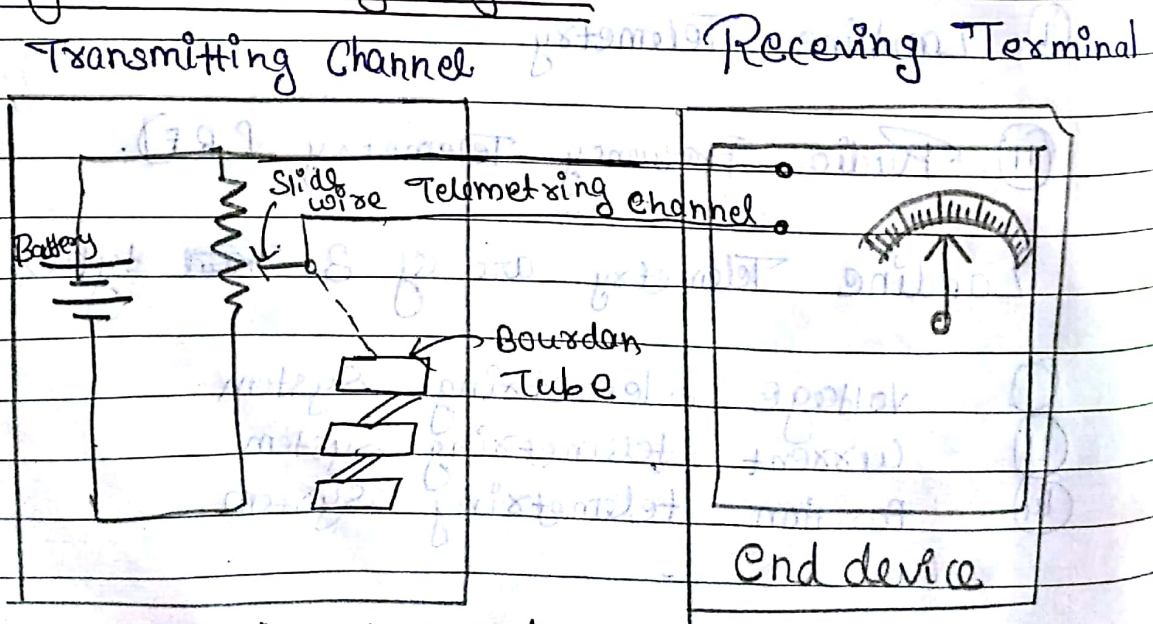 Transmitting Channel
Receving Terminal
Slide
wire
Telemetring Channel
Battery
Bourdan
Tube
end device